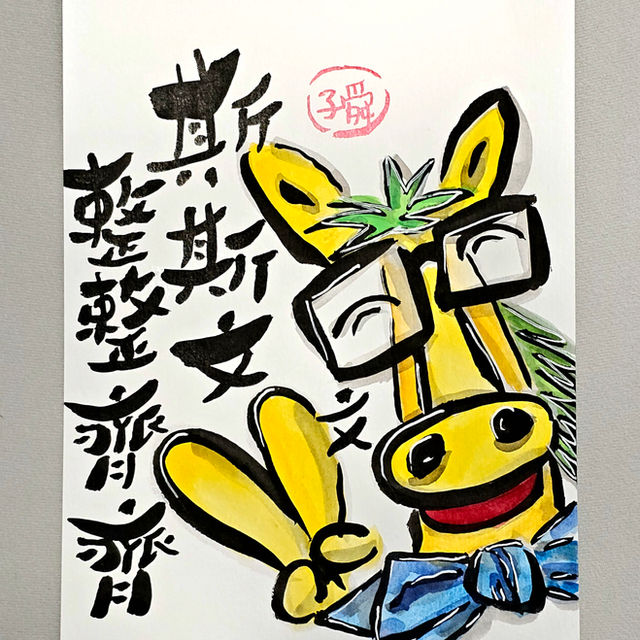 斯斯文文
整整齊齊
舜子